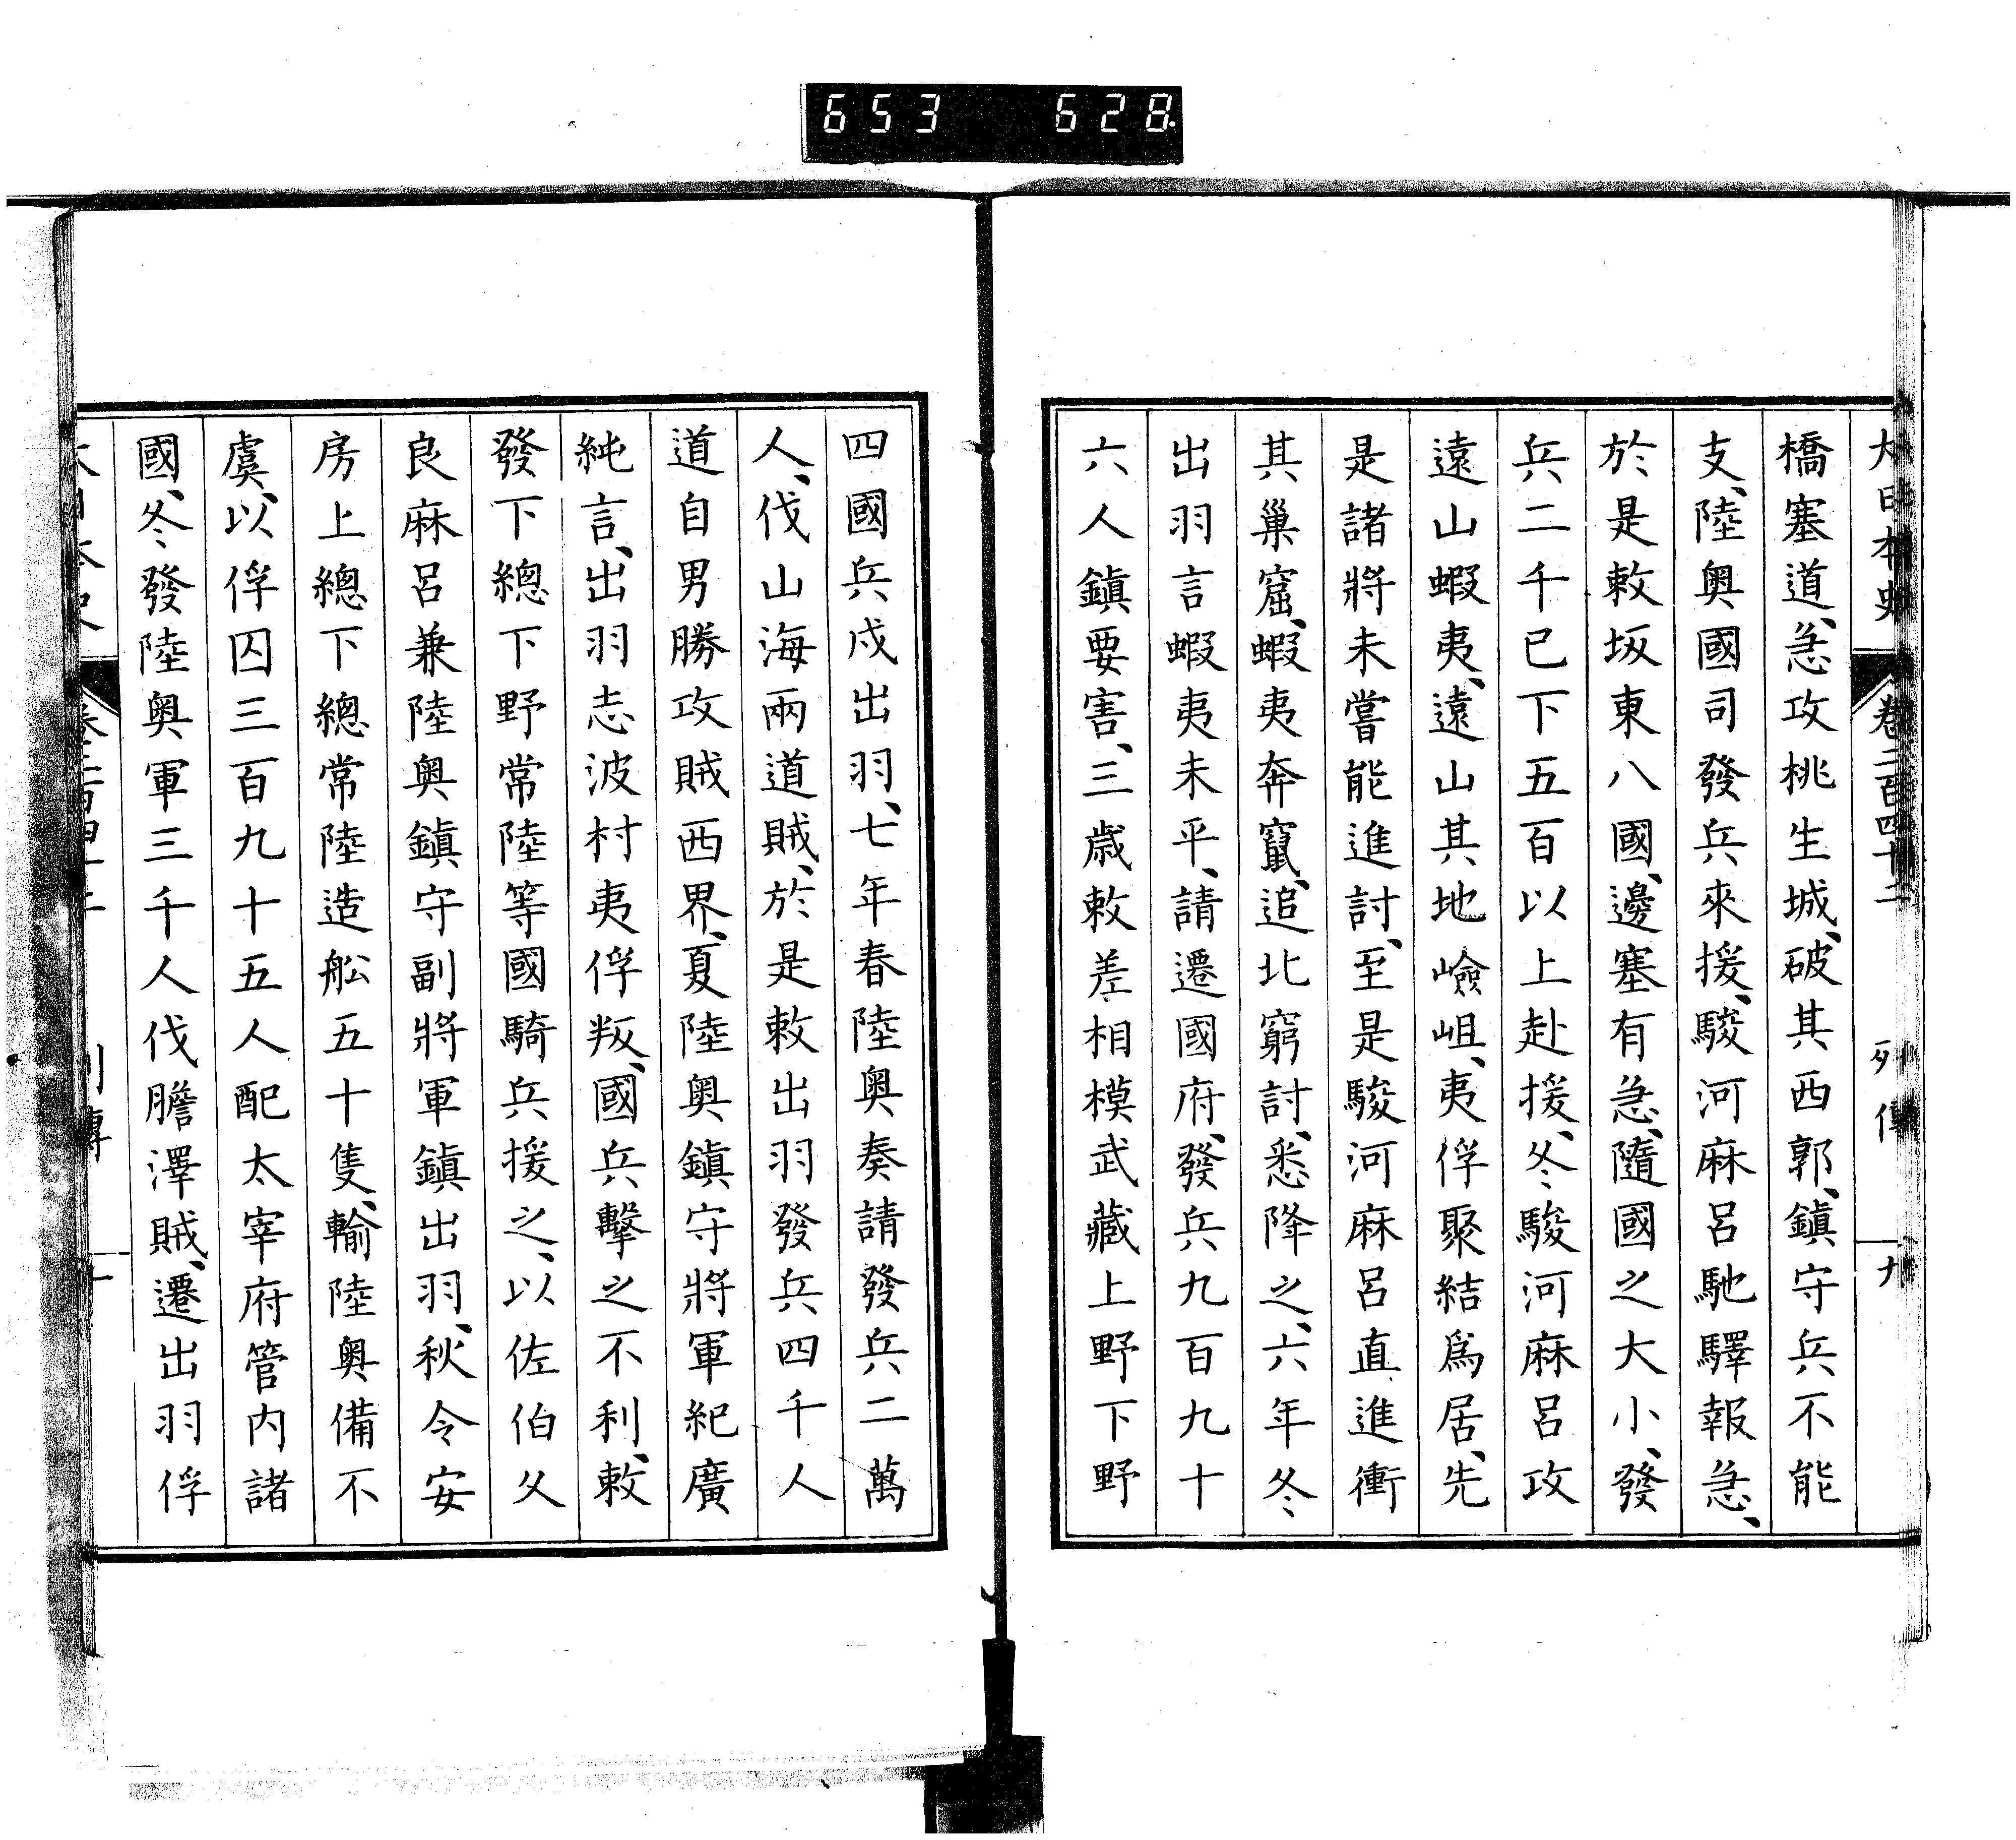 653 628
大日本史 卷二百四十二 列傳 九
橋塞道、急攻桃生城、破其西郭、鎮守兵不能
支、陸奧國司發兵來援、駿河麻呂馳驛報急、
於是敕坂東八國、邊塞有急、隨國之大小、發
兵二千已下五百以上赴援、冬駿河麻呂攻
遠山蝦夷、遠山其地嶮岨、夷俘聚結爲居、先
是諸將未嘗能進討、至是駿河麻呂直進衝
其巢窟、蝦夷奔竄、追北窮討、悉降之、六年冬
出羽言蝦夷未平、請遷國府、發兵九百九十
六人鎮要害、三歲敕差相模武藏上野下野
四國兵戍出羽、七年春陸奧奏請發兵二萬
人、伐山海兩道賊、於是敕出羽發兵四千人
道自男勝攻賊西界、夏陸奧鎮守將軍紀廣
純言、出羽志波村夷俘叛、國兵擊之不利、敕
發下總下野常陸等國騎兵援之、以佐伯久
良麻呂兼陸奧鎮守副將軍鎮出羽、秋令安
房上總下總常陸造舩五十隻、輸陸奧備不
虞、以俘囚三百九十五人配太宰府管內諸
國、冬發陸奧軍三千人伐膽澤賊、遷出羽俘